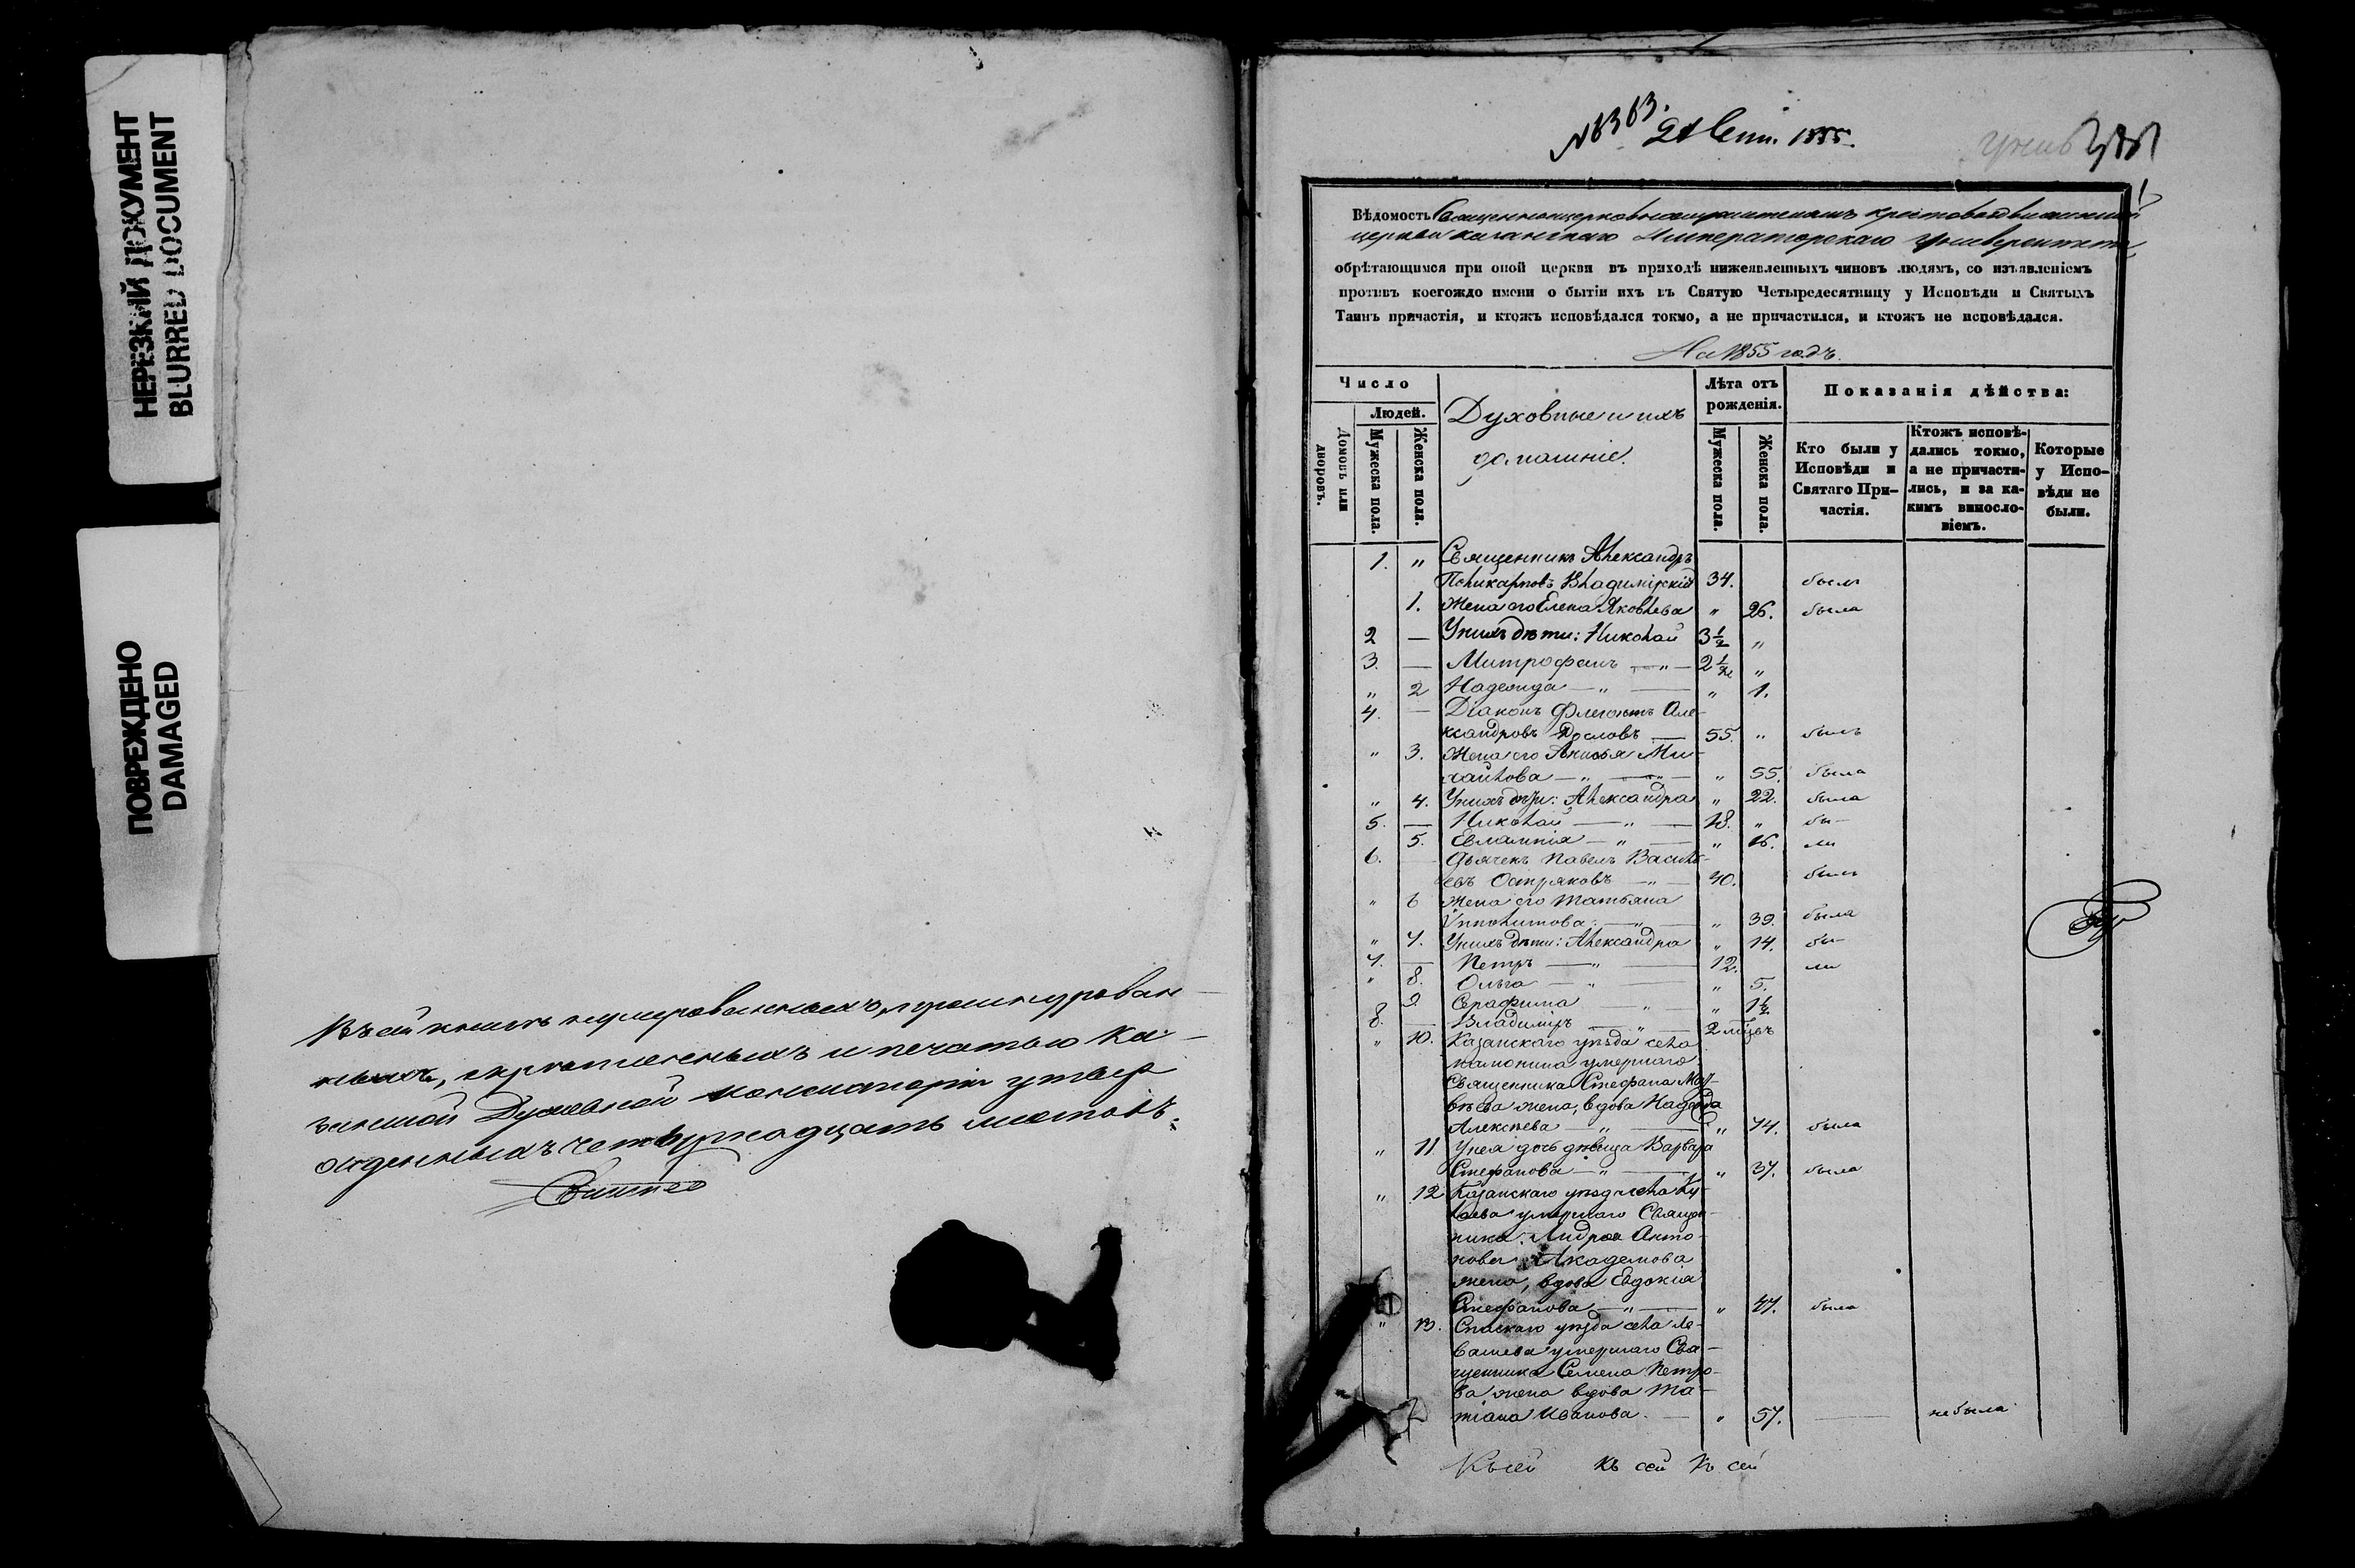 НЕРЕЗКИЙ ДОКУМЕНТ
BLURRED DOCUMENT
ПОВРЕЖДЕНО
DAMAGED
нумерованныхъ, прошнурован-
ныхъ, скрепленныхъ и печатью Ка-
занской Духовной Консисторіи утвер
жденныхъ четырнадцать листовъ.
№ 8363. 21 Сент. 1855.
Вѣдомость Священноцерковнослужителямъ Крестовоздвиженской
церкви Казанскаго Императорскаго Университета
обрѣтающимся при оной церкви въ приходѣ нижеявленныхъ чиновъ людямъ, со изъявленіемъ
противъ коегождо имени о бытіи ихъ въ Святую Четыредесятницу у Исповѣди и Святыхъ
Таинъ причастія, и ктожъ исповѣдался токмо, а не причастился, и ктожъ не исповѣдался.
На 1855 годъ.
Число
Людей.
Домовъ или дворовъ.
Мужеска пола.
Женска пола.
Духовные и ихъ
домашніе.
Лѣта отъ рожденія.
Мужеска пола.
Женска пола.
Показанія дѣйства:
Кто были у Исповѣди и Святаго При-
частія.
Ктожъ исповѣ-
дались токмо,
а не причасти-
лись, и за ка-
кимъ винословіемъ.
Которые у Испо-
вѣди не были.
1. " Священникъ Александръ
Поликарповъ Владимірскій 34. былъ
1. Жена его Елена Яковлева " 26. была
2 — У нихъ дѣти: Николай 3½ "
3. — Митрофанъ — " — 2½ "
" 2 Надежда — " — " 1.
4. — Діаконъ Флегонтъ Але-
ксандровъ — 55. " былъ
" 3. Жена его Анисья Ми-
хайлова — " — " 55. была
" 4. У нихъ дѣти: Александра " 22. была
5. — Николай — " — 18. " бы-
5. Евлампія — " — " 16. ли
6. Дьячекъ Павелъ Василь-
евъ Остряковъ — " — 40. былъ
" 6 Жена его Татьяна
Ипполитова — " — " 39. была
" 7. У нихъ дѣти: Александра " 14. бы-
7. — Петръ — " — 12. ли
" 8. Ольга — " — " 5.
9. Серафима — " — " 1½
8. — Владиміръ — " — 2 мѣсъ
" 10. Казанскаго уѣзда села
умершаго
Священника Стефана Мат-
вѣева жена, вдова Надежда
Алексѣева — " — " 74. была
" 11 У нея дочь дѣвица Варвара
Стефанова — " — " 37. была
" 12 Казанскаго уѣзда села Ку-
умершаго Священ-
ника Андрея Анто-
нова Академова
жена, вдова Евдокія
Стефанова — " — " 47. была
" 13. Спаскаго уѣзда села Ле-
вашева умершаго Свя-
щенника Семена Петро-
ва жена вдова Та-
тіана Иванова. — " 57. — не была
Къ сей Къ сей Къ сей